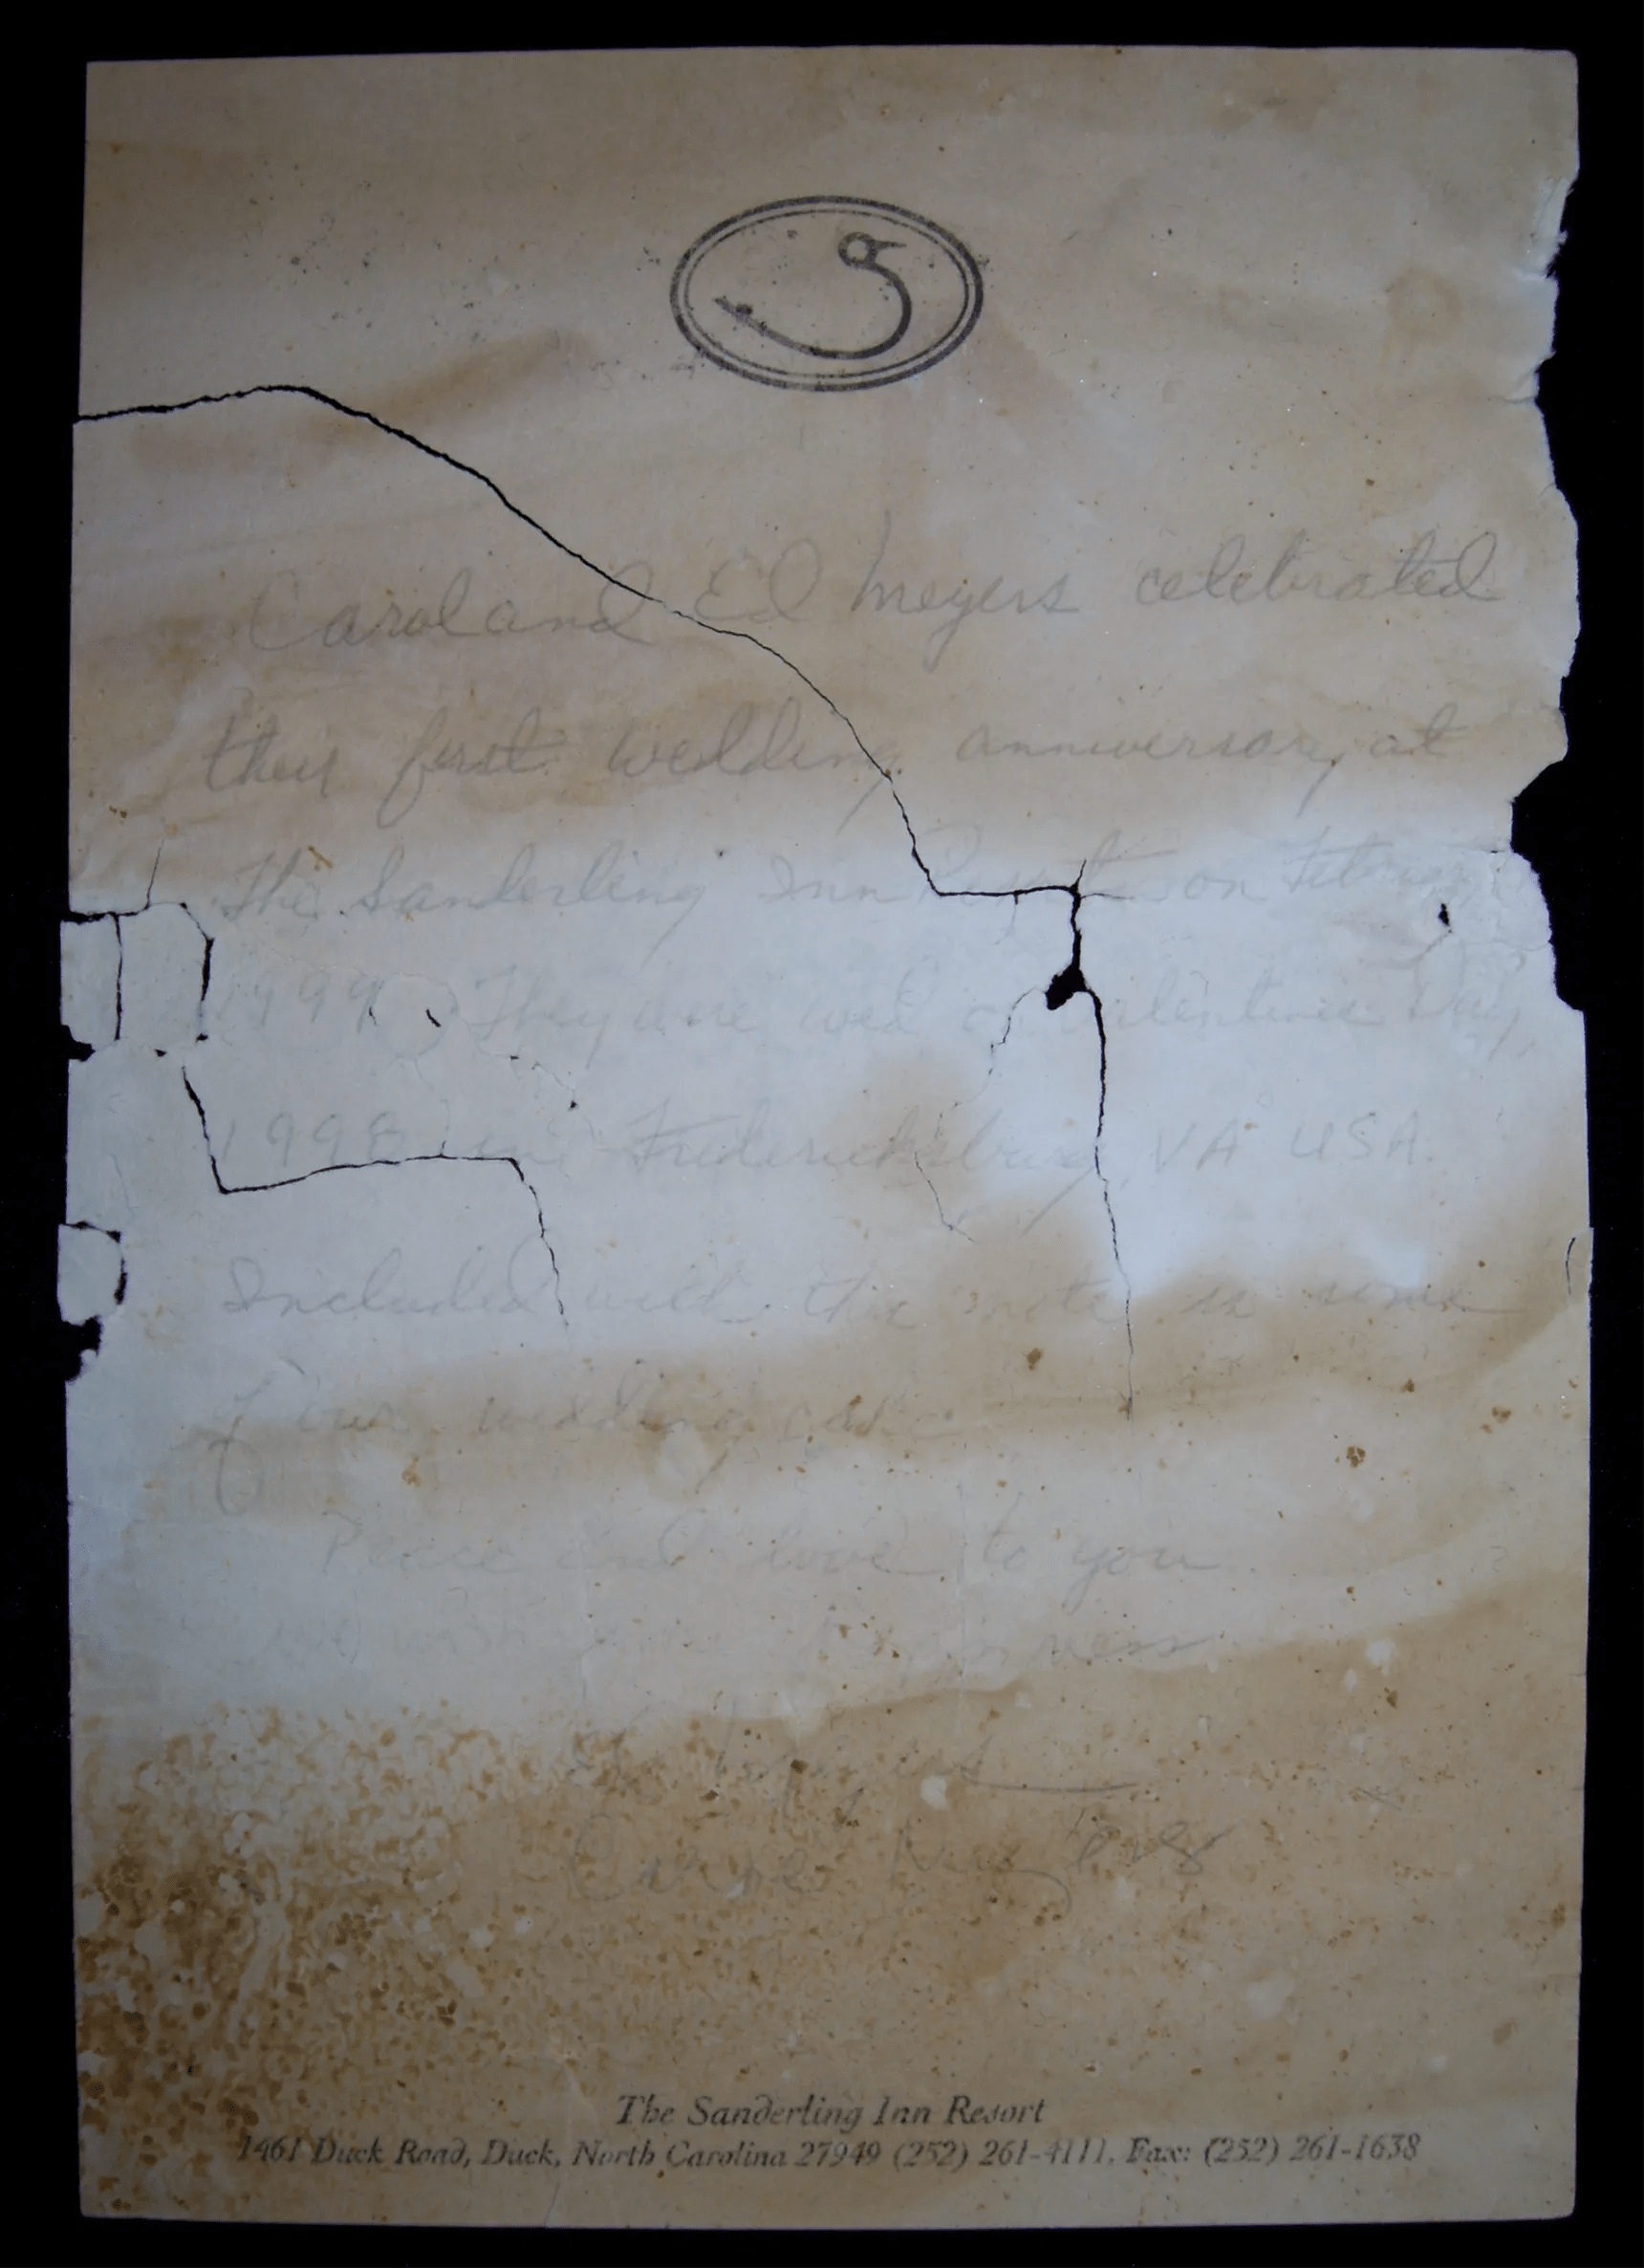 Carol and Ed Meyers celebrated
their first wedding anniversary at
The Sanderling Inn Resort on
1999. They were wed on Valentines Day,
1998 in Fredericksburg, VA USA.
Included with this note is some
of our wedding cake
Peace and love to you
we wish you happiness
Carol Meyers
The Sanderling Inn Resort
1461 Duck Road, Duck, North Carolina 27949 (252) 261-4111, Fax: (252) 261-1638